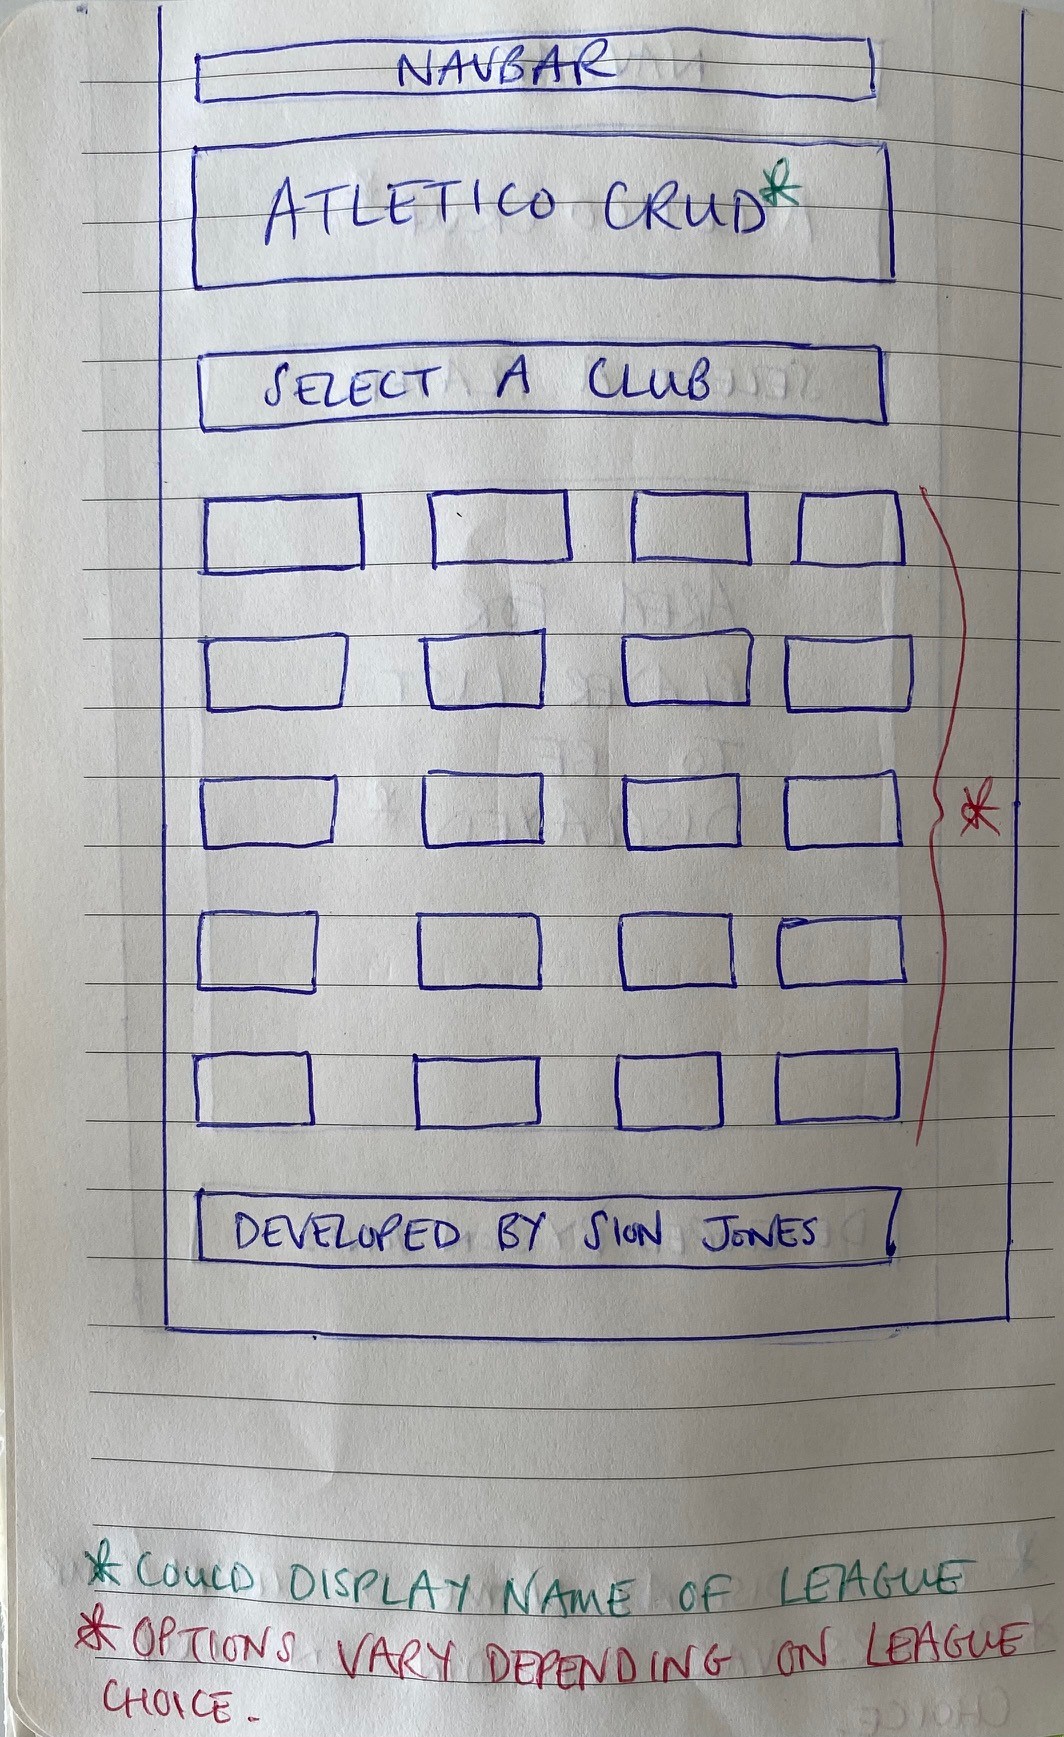 NAVBAR
ATLETICO CRUD*
SELECT A CLUB
*
DEVELOPED BY SION JONES
* COULD DISPLAY NAME OF LEAGUE
* OPTIONS VARY DEPENDING ON LEAGUE
CHOICE.